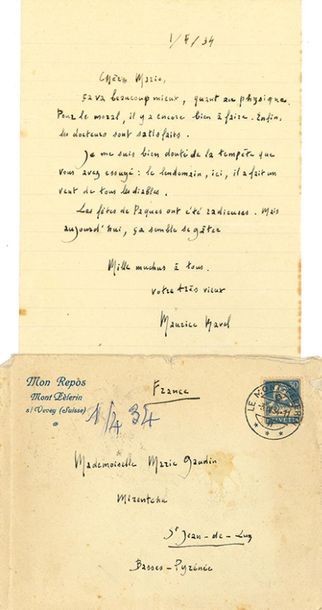 1/4/34
Chère Marie,
ça va beaucoup mieux, quant au physique.
Pour le moral, il y a encore bien à faire. Enfin,
les docteurs sont satisfaits.
Je me suis bien douté de la tempête que
vous avez essuyé : le lendemain, ici, il a fait un
vent de tous les diables.
Les fêtes de Pâques ont été radieuses. Mais
aujourd'hui, ça semble se gâter
Mille muchus à tous.
votre très vieux
Maurice Ravel
Mon Repos
Mont Pèlerin
s/Vevey (Suisse)
France
1/4 34
30
HELVETIA
Mademoiselle Marie Gaudin
Mirentchu
St Jean-de-Luz
Basses-Pyrénée